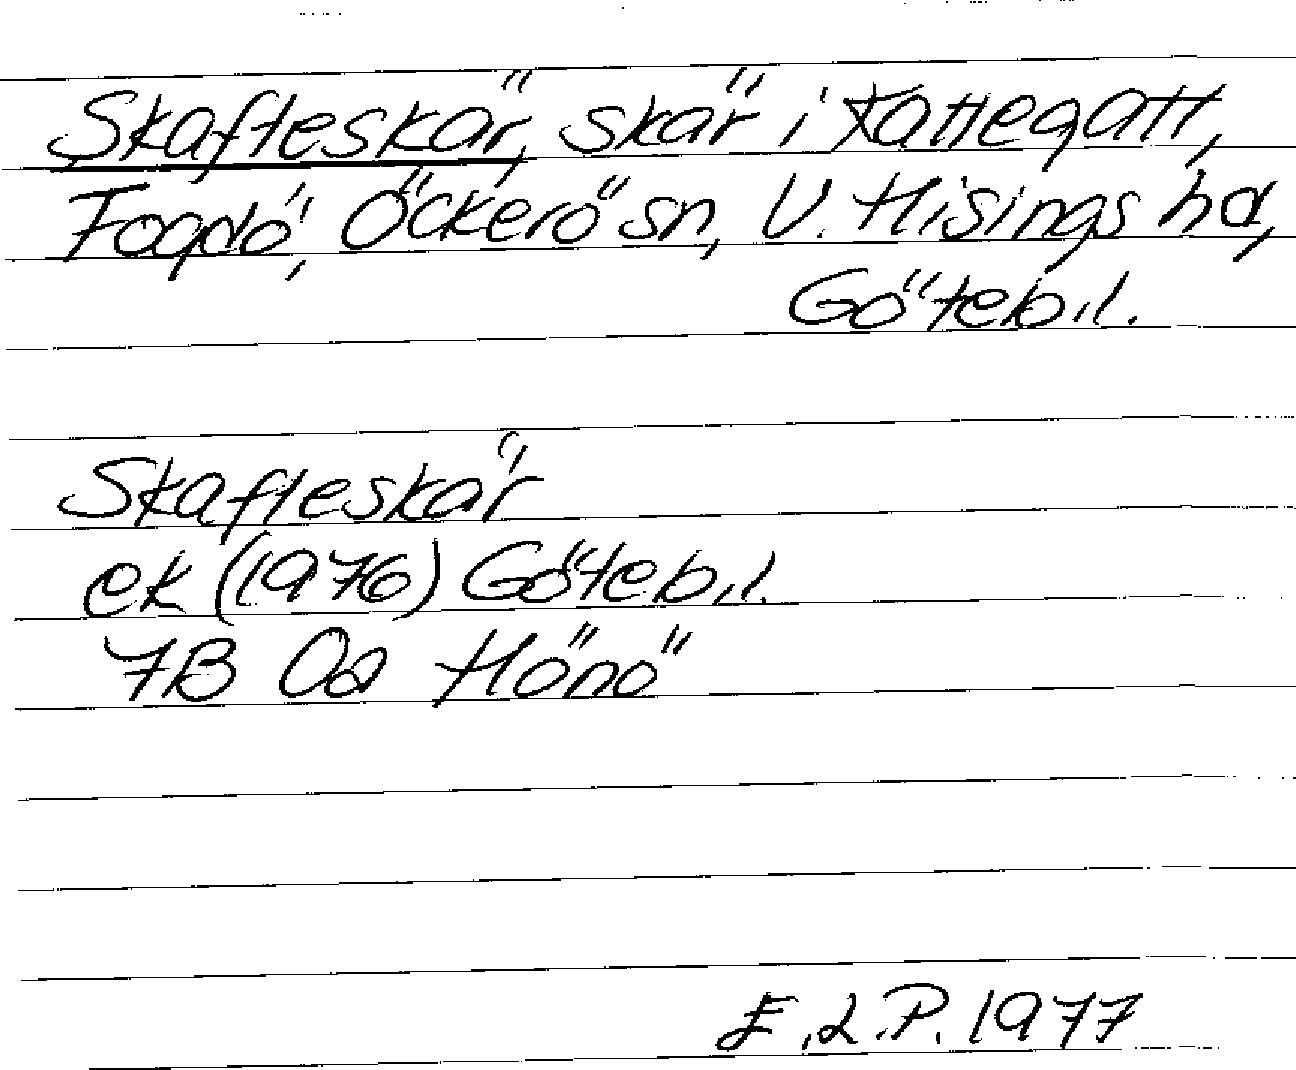 Skafteskär, skär i Kattegatt,
Fogdö, Öckerö sn, V. Hisings hd,
Göteb.l.
Skafteskär
ek (1976) Göteb.l.
7B 0a Hönö
E.L.P. 1977